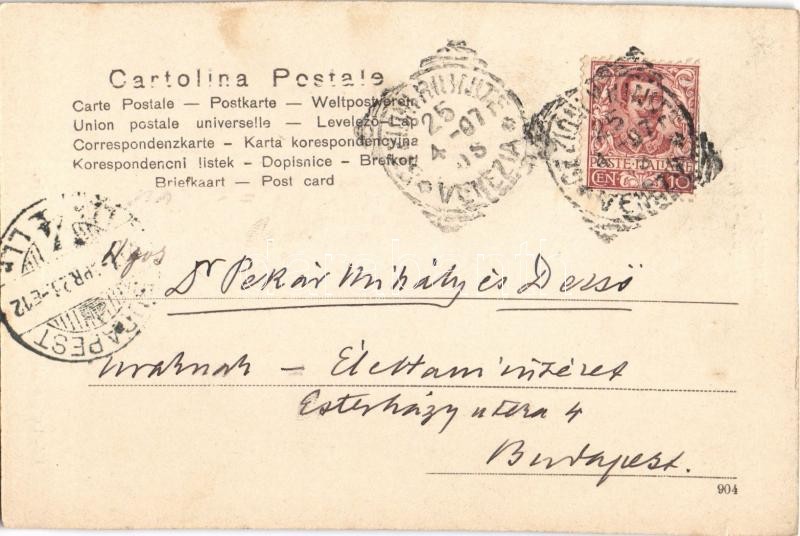 Cartolina Postale
Carte Postale — Postkarte — Weltpostverein
Union postale universelle — Levelező-Lap
Correspondenzkarte - Karta korespondencyjna
Korespondencni listek - Dopisnice - Brefkort
Briefkaart — Post card
25
4
VENEZIA
POSTE ITALIANE
CEN 10
VENEZIA
BUDAPEST
Dr Pekár Mihály és Dezső
uraknak — Élettani intézet
Esterházy utcza 4
Budapest.
904